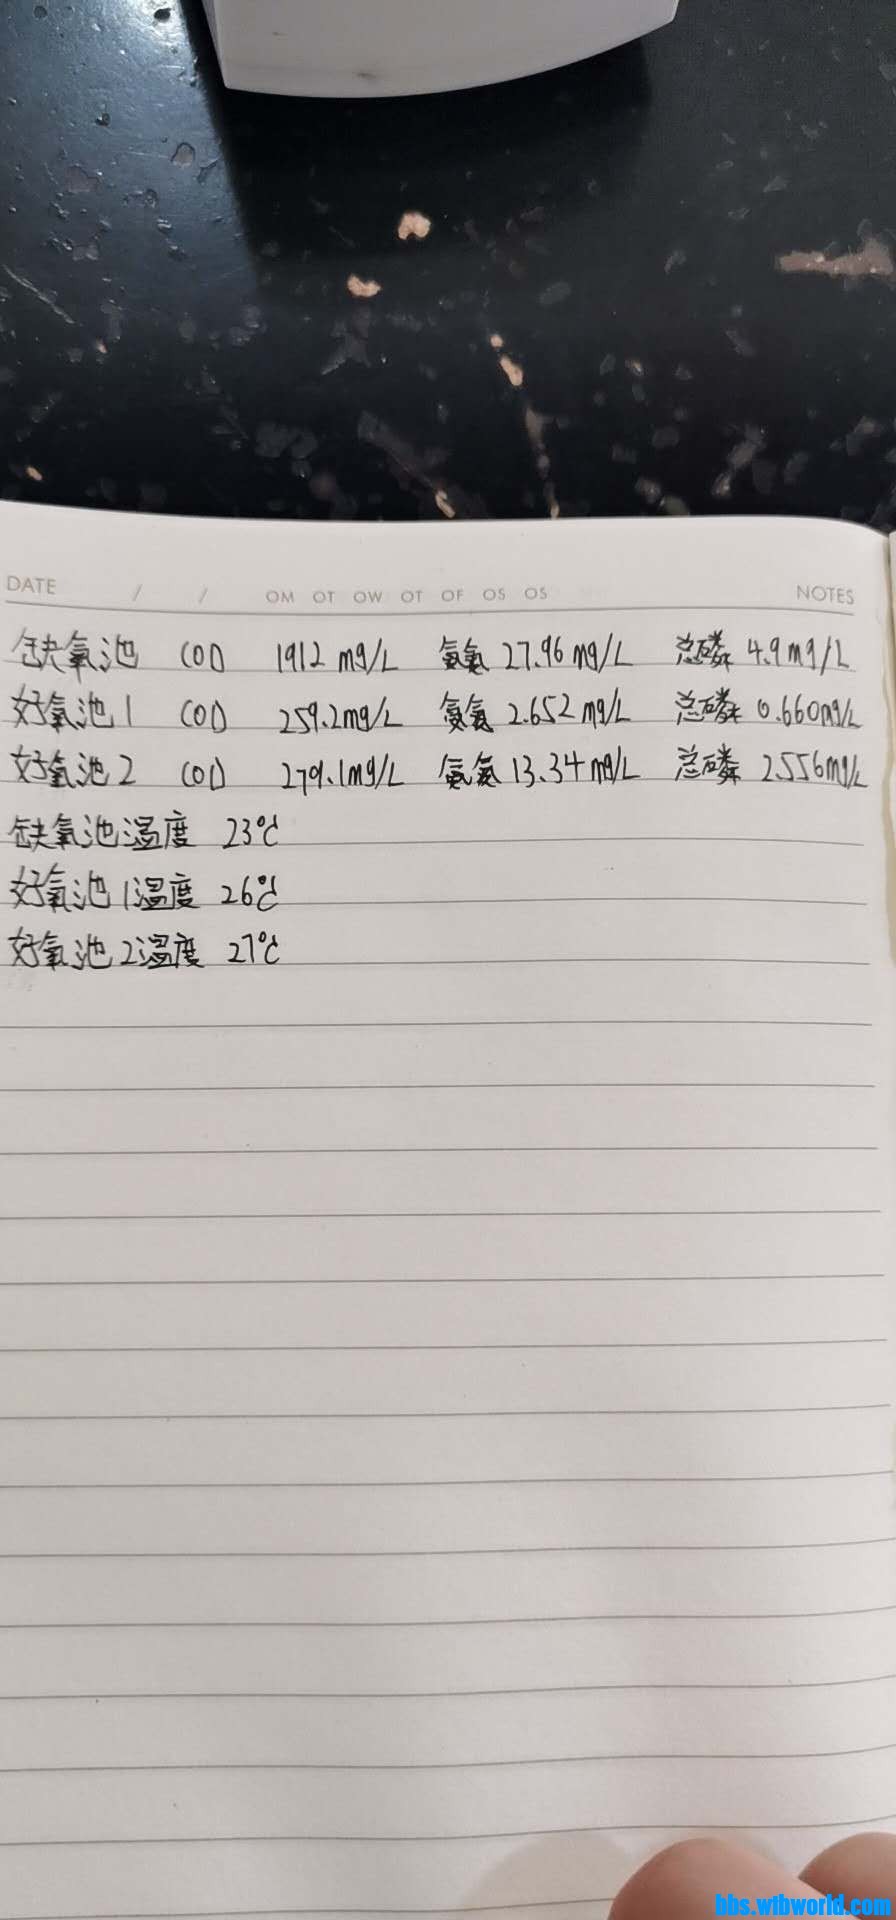 DATE / / OM OT OW OT OF OS OS NOTES
缺氧池 COD 1912 mg/L 氨氮 27.96 mg/L 总磷 4.9mg/L
好氧池1 COD 259.2mg/L 氨氮 2.652 mg/L 总磷 0.660mg/L
好氧池2 COD 279.1mg/L 氨氮 13.34 mg/L 总磷 2.556mg/L
缺氧池温度 23℃
好氧池1温度 26℃
好氧池2温度 27℃
bbs.wibworld.com